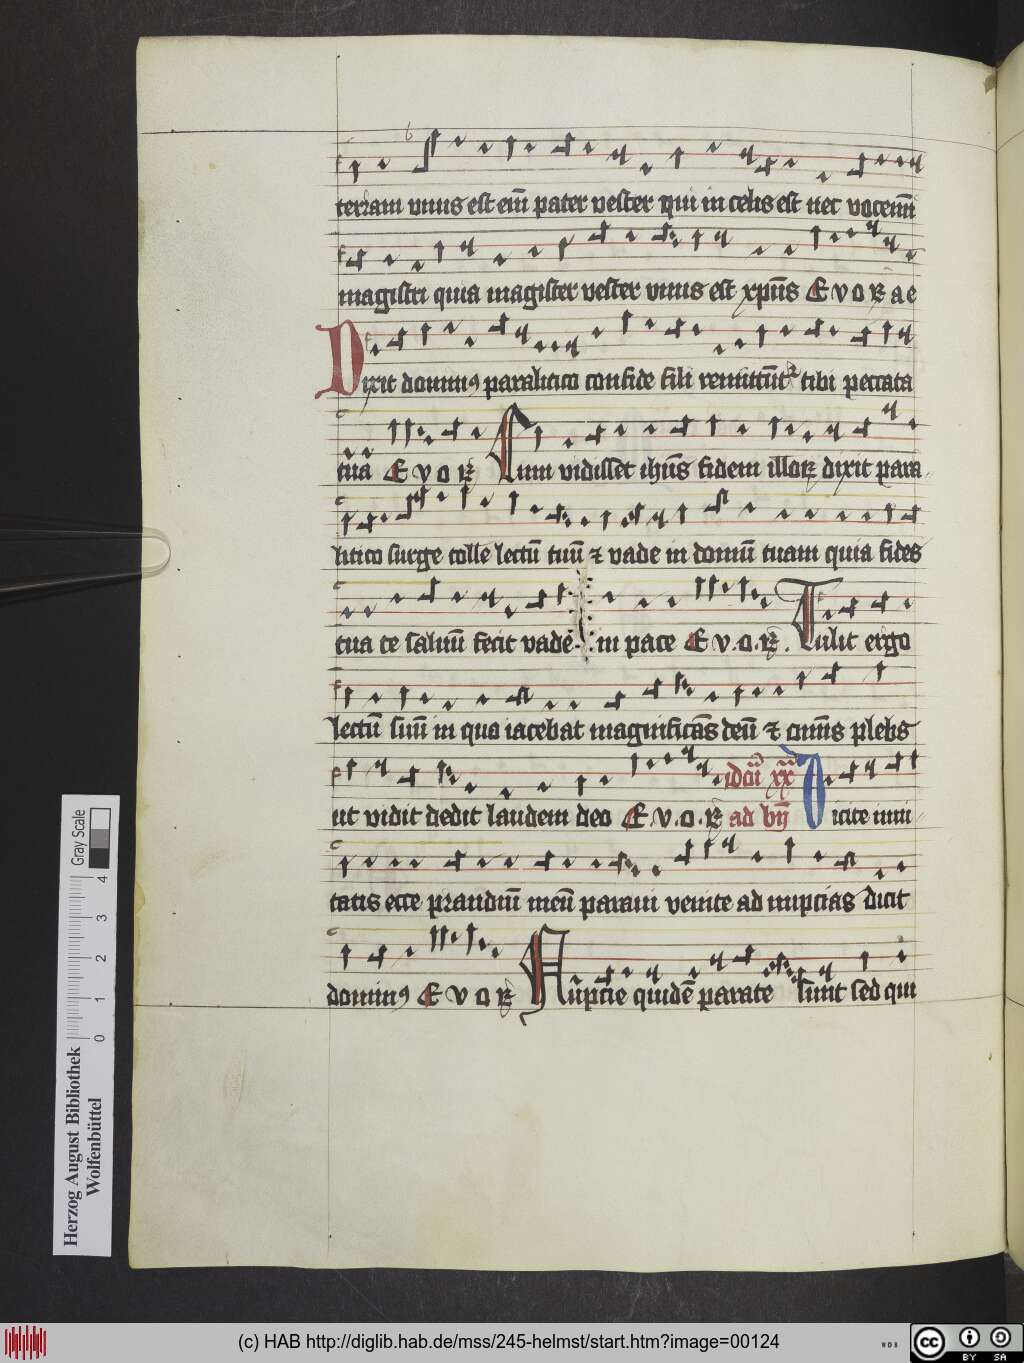 terram unus est em̄ pater vester qui in celis est nec vocemī
magistri quia magister vester unus est xp̄us E v o R a e
Dixit dominꝰ paralitico confide fili remittūt᷑ tibi peccata
tua E v o R Cum vidisset ihūs fidem illoꝝ dixit para
litico surge tolle lectū tuū ⁊ vade in domū tuam quia fides
tua te saluū fecit vade in pace E v.o.R. Tulit ergo
lectū suū in quo iacebat magnificās deū ⁊ om̄is plebs
ut vidit dedit laudem deo E.v.o.R ad bn̄ Dicite inui
tatis ecce prandiū meū paraui venite ad nupcias dicit
dominꝰ E v o R Nupcie quidē parate sunt sed qui
Herzog August Bibliothek
Wolfenbüttel
0 1 2 3 4
Gray Scale
(c) HAB http://diglib.hab.de/mss/245-helmst/start.htm?image=00124
WDB
cc BY SA